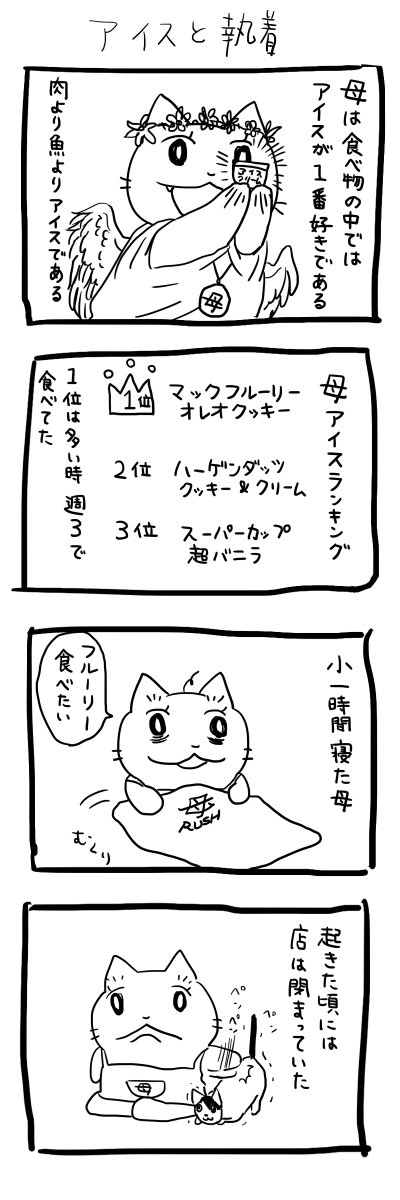 アイスと執着
母は食べ物の中では
アイスが1番好きである
アイス
クリーム
肉より魚よりアイスである
母
母アイスランキング
1位
マックフルーリー
オレオクッキー
2位
ハーゲンダッツ
クッキー&クリーム
3位
スーパーカップ
超バニラ
1位は多い時週3で
食べてた
小一時間寝た母
フルーリー
食べたい
母
RUSH
むくり
起きた頃には
店は閉まっていた
ペ
ペン
ペン
母